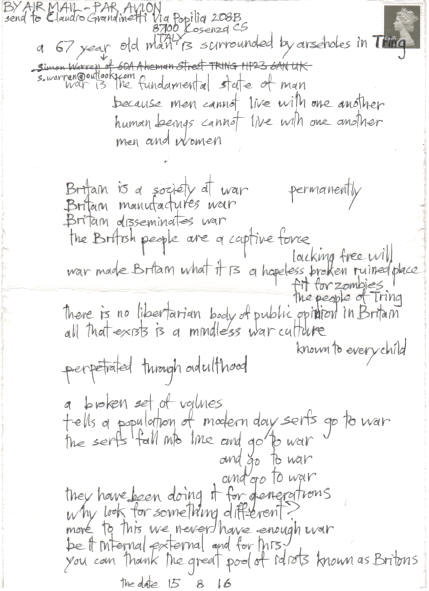 BY AIR MAIL - PAR AVION
send to Claudio Grandinetti Via Popilia 208B
87100 Cosenza CS
ITALY
a 67 year old man is surrounded by arseholes in Tring
Simon Warren of 60A Akeman Street TRING HP23 6AN UK
s.warren@outlook.com
war is the fundamental state of man
because men cannot live with one another
human beings cannot live with one another
men and women
Britain is a society at war permanently
Britain manufactures war
Britain disseminates war
the British people are a captive force
lacking free will
war made Britain what it is a hopeless broken ruined place
fit for zombies
the people of Tring
there is no libertarian body of public opinion in Britain
all that exists is a mindless war culture
known to every child
perpetrated through adulthood
a broken set of values
tells a population of modern day serfs go to war
the serfs fall into line and go to war
and go to war
and go to war
they have been doing it for generations
why look for something different?
more to this we never have enough war
be it internal external and for this
you can thank the great pool of idiots known as Britons
the date 15 8 16